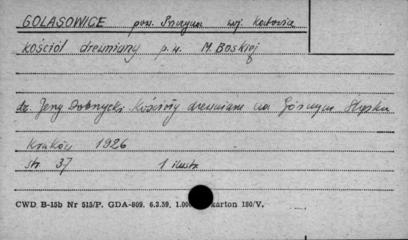 GOLASOWICE pow. Pszczyna woj. Katowice
kościół drewniany p.w. M. Boskiej
dr. Jerzy Dobrzycki Kościoły drewniane na Górnym Śląsku
Kraków 1926
str. 37 1 ilustr.
CWD B-15b Nr 515/P. GDA-809. 6.2.59. 1.000 karton 180/V.